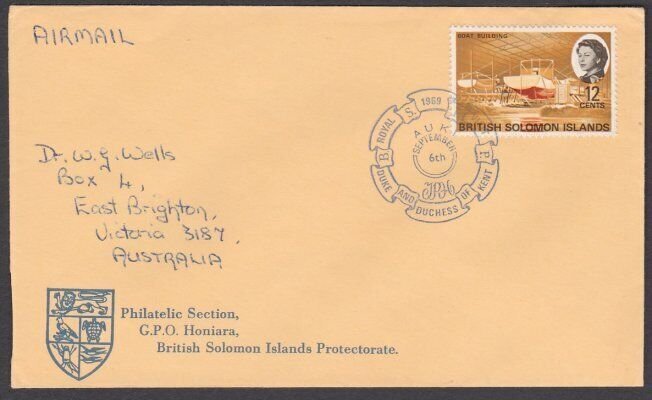 AIRMAIL
BOAT BUILDING
12
CENTS
BRITISH SOLOMON ISLANDS
B. S. I. P.
ROYAL 1969
AUKI
SEPTEMBER
6th
DUKE AND DUCHESS OF KENT
Dr. W. G. Wells
Box 4,
East Brighton,
Victoria 3187,
AUSTRALIA
Philatelic Section,
G.P.O. Honiara,
British Solomon Islands Protectorate.